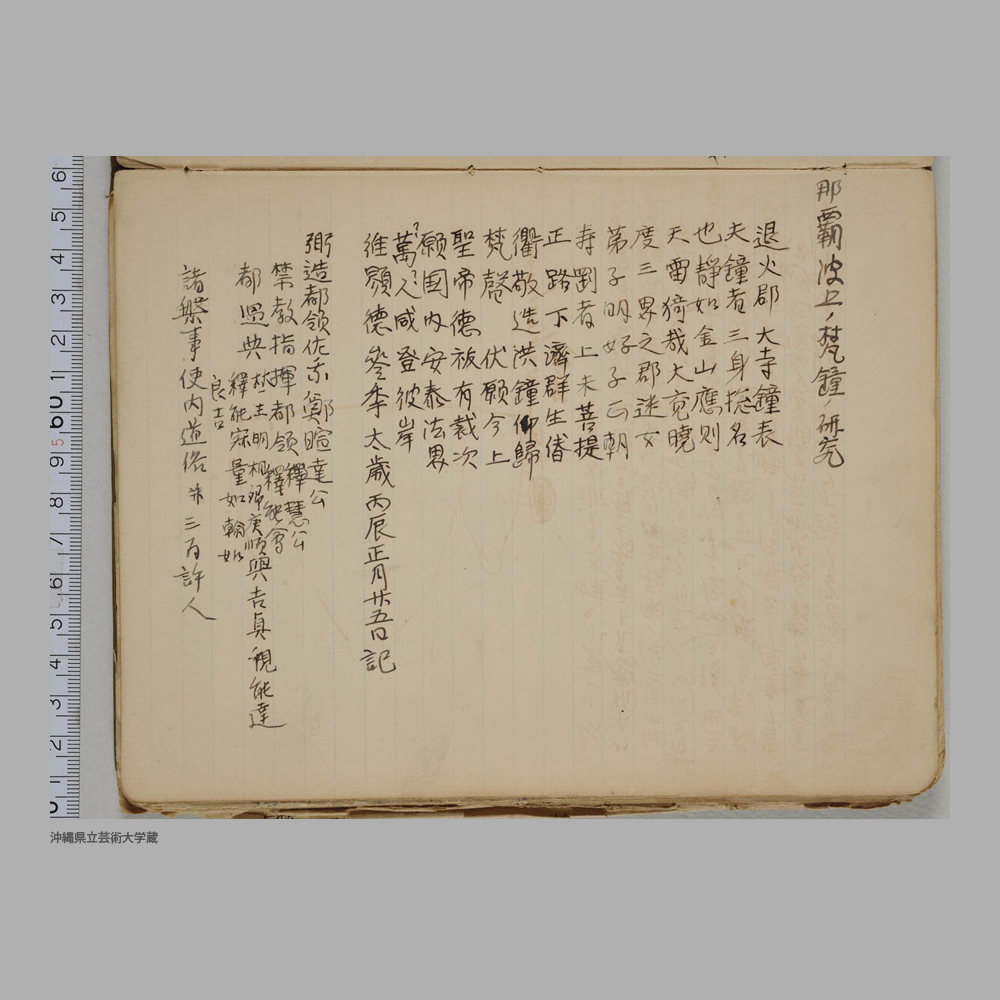 那覇波上ノ梵鐘ノ研究
退火郡大寺鐘表
夫鐘者三身摠名
也靜如金山應則
天雷猗哉大克曉
度三界之郡迷女
第子明好子正朝
寿劉者上未菩提
正路下濟群生偆
衢敬造洪鐘仰歸
梵聲伏願今上
聖帝德被有裁次
願国内安泰法界
萬人咸登彼岸
維顕德叄季太歳丙辰正月廿五日記
弼造都領佐
鄭暄達公
禁教指揮都領釋慧公
釋能會
都
典
村主明
庚順典吉貞
能達
釋能
量如翰如
良吉
諸
事使内道俗
三百許人
沖縄県立芸術大学蔵